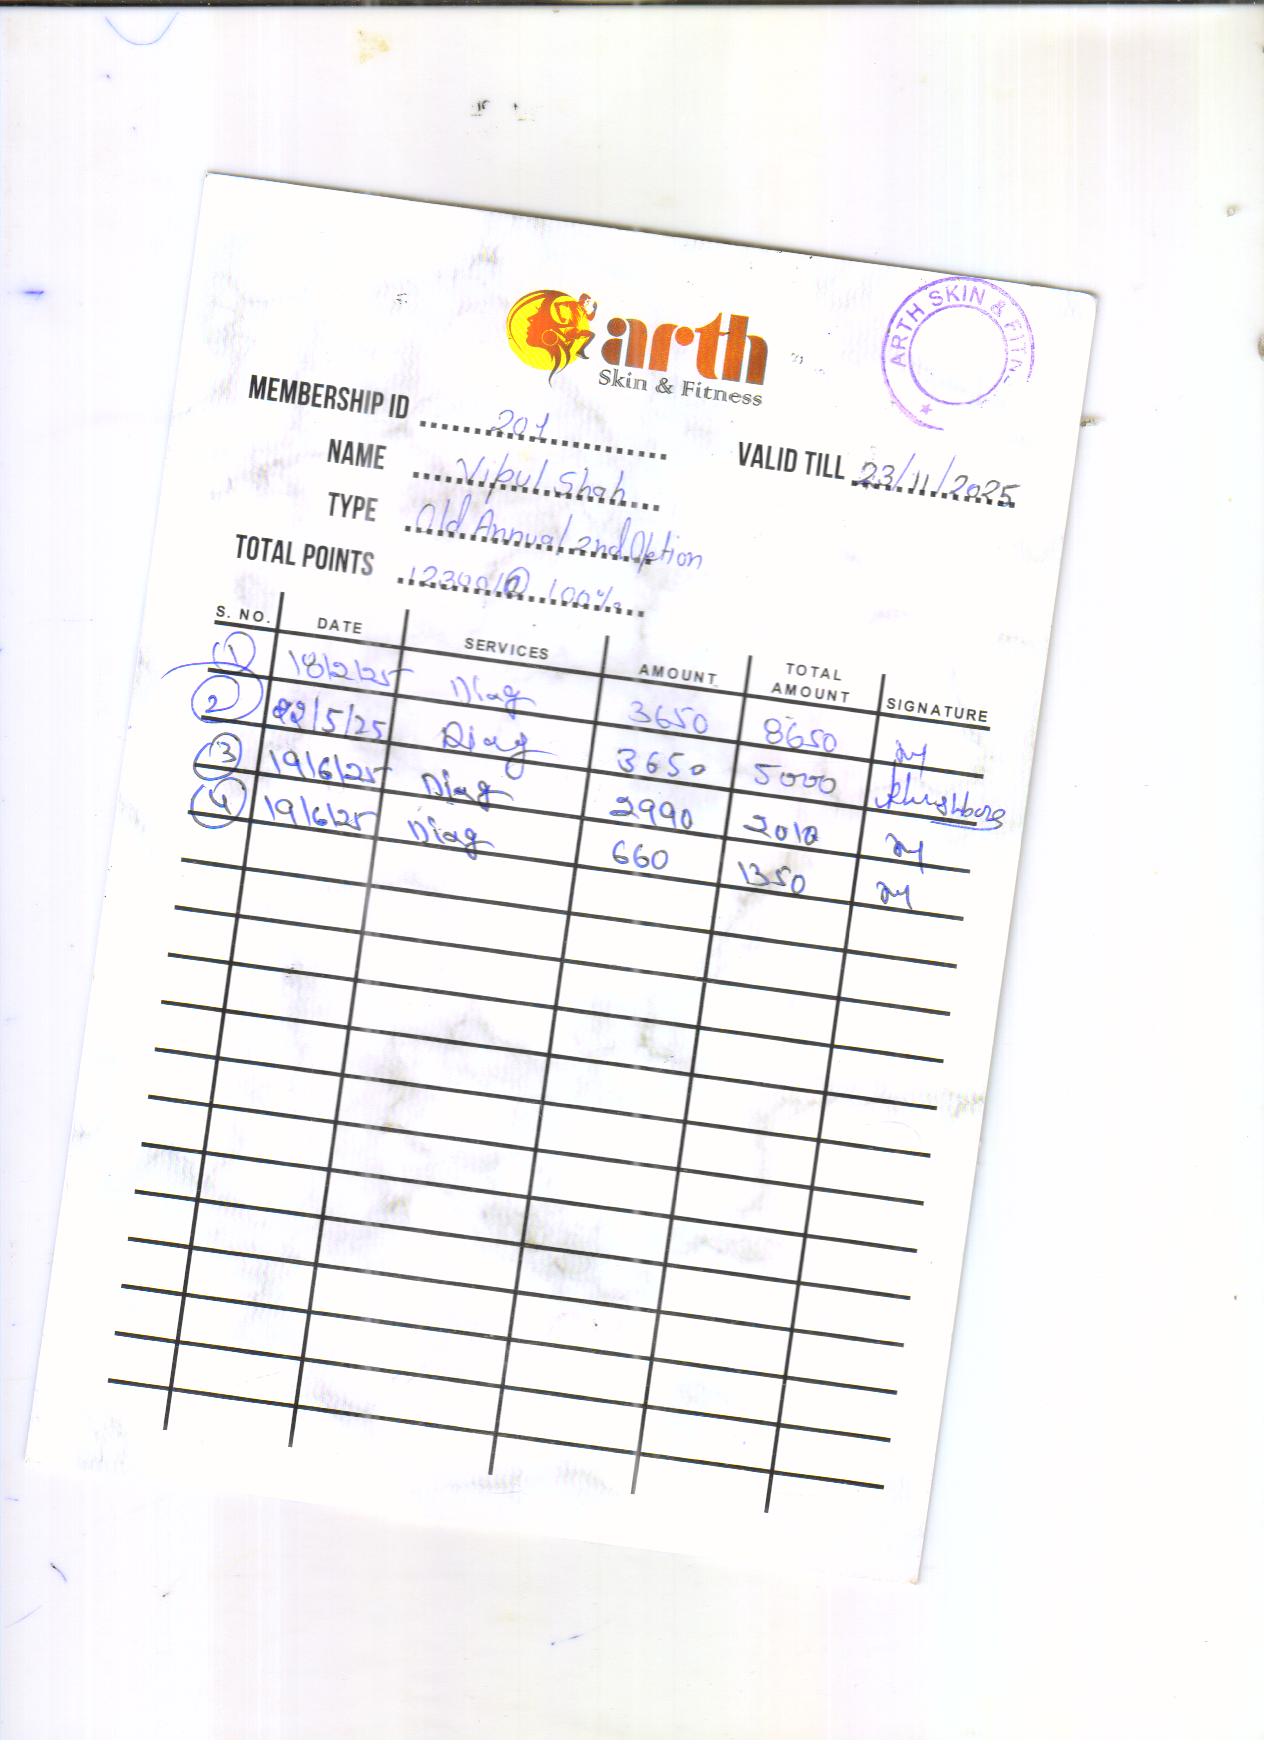 arth
Skin & Fitness
ARTH SKIN & FITN
MEMBERSHIP ID 201
VALID TILL 23/11/2025
NAME Vipul Shah
TYPE Old Annual 2nd Option
TOTAL POINTS 12300/@ 100%
S. NO. DATE SERVICES AMOUNT TOTAL AMOUNT SIGNATURE
1 18/2/25 Diag 3650 8650
2 22/5/25 Diag 3650 5000
3 19/6/25 Diag 2990 2010
4 19/6/25 Diag 660 1350